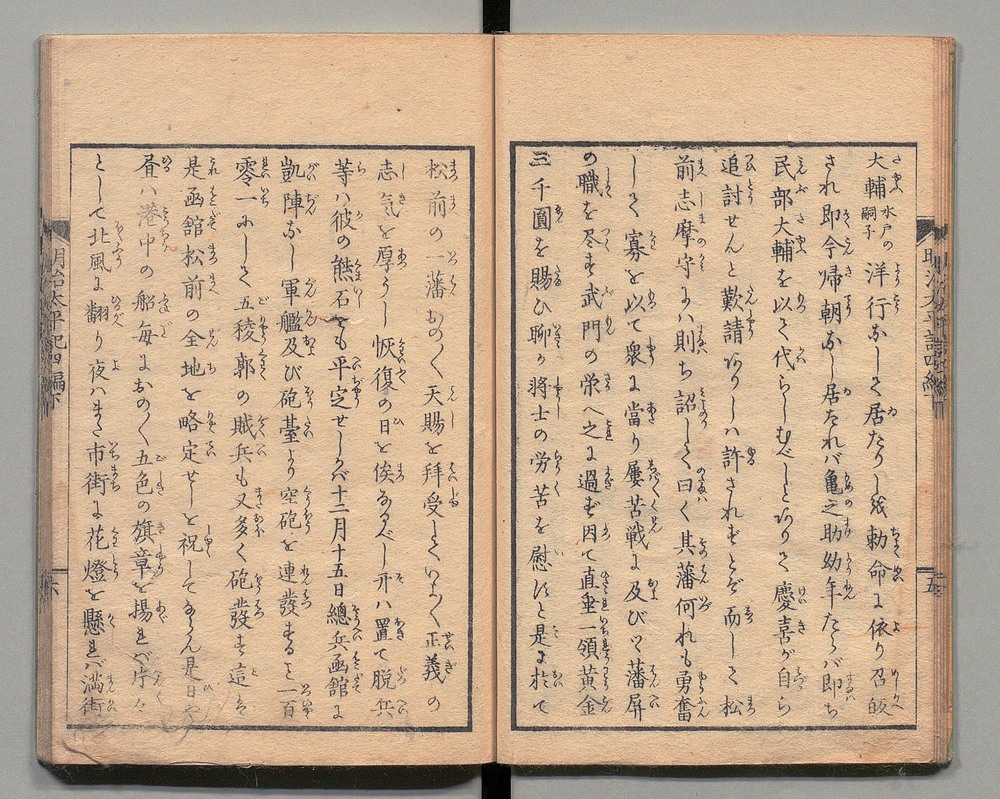 大輔水戸の嗣子洋行なして居たりしを勅命に依り召皈
され即今帰朝なし居たれバ亀之助幼年たらバ即ち
民部大輔を以て代らしむべしとありて慶喜が自ら
追討せんと歎請ありしハ許されずとぞ而して松
前志摩守にハ則ち詔して曰く其藩何れも勇奮
して寡を以て衆に當り屡苦戦に及びて藩屏
の職を尽す武門の栄へ之に過ず因て直垂一領黄金
三千圓を賜ひ聊か将士の労苦を慰すと是に於て
松前の一藩おの〳〵天賜を拝受していよ〳〵正義の
志気を厚うし恢復の日を俟なるべし开ハ置て脱兵
等ハ彼の熊石をも平定せしかバ十二月十五日總兵函館に
凱陣なし軍艦及び砲臺より空砲を連發すること一百
零一にして五稜郭の賊兵も又多く砲發す這ハ
是函館松前の全地を略定せしを祝してならん是日や
昼ハ港中の船毎におの〳〵五色の旗章を揚れバ片々
として北風に翻り夜ハまた市街に花燈を懸れバ満街
明治太平記四編下
五
六